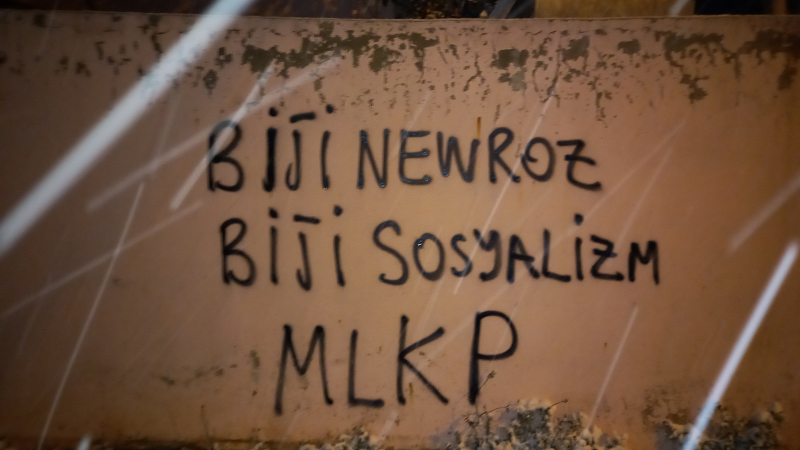 BİJİ NEWROZ
BİJİ SOSYALİZM
MLKP